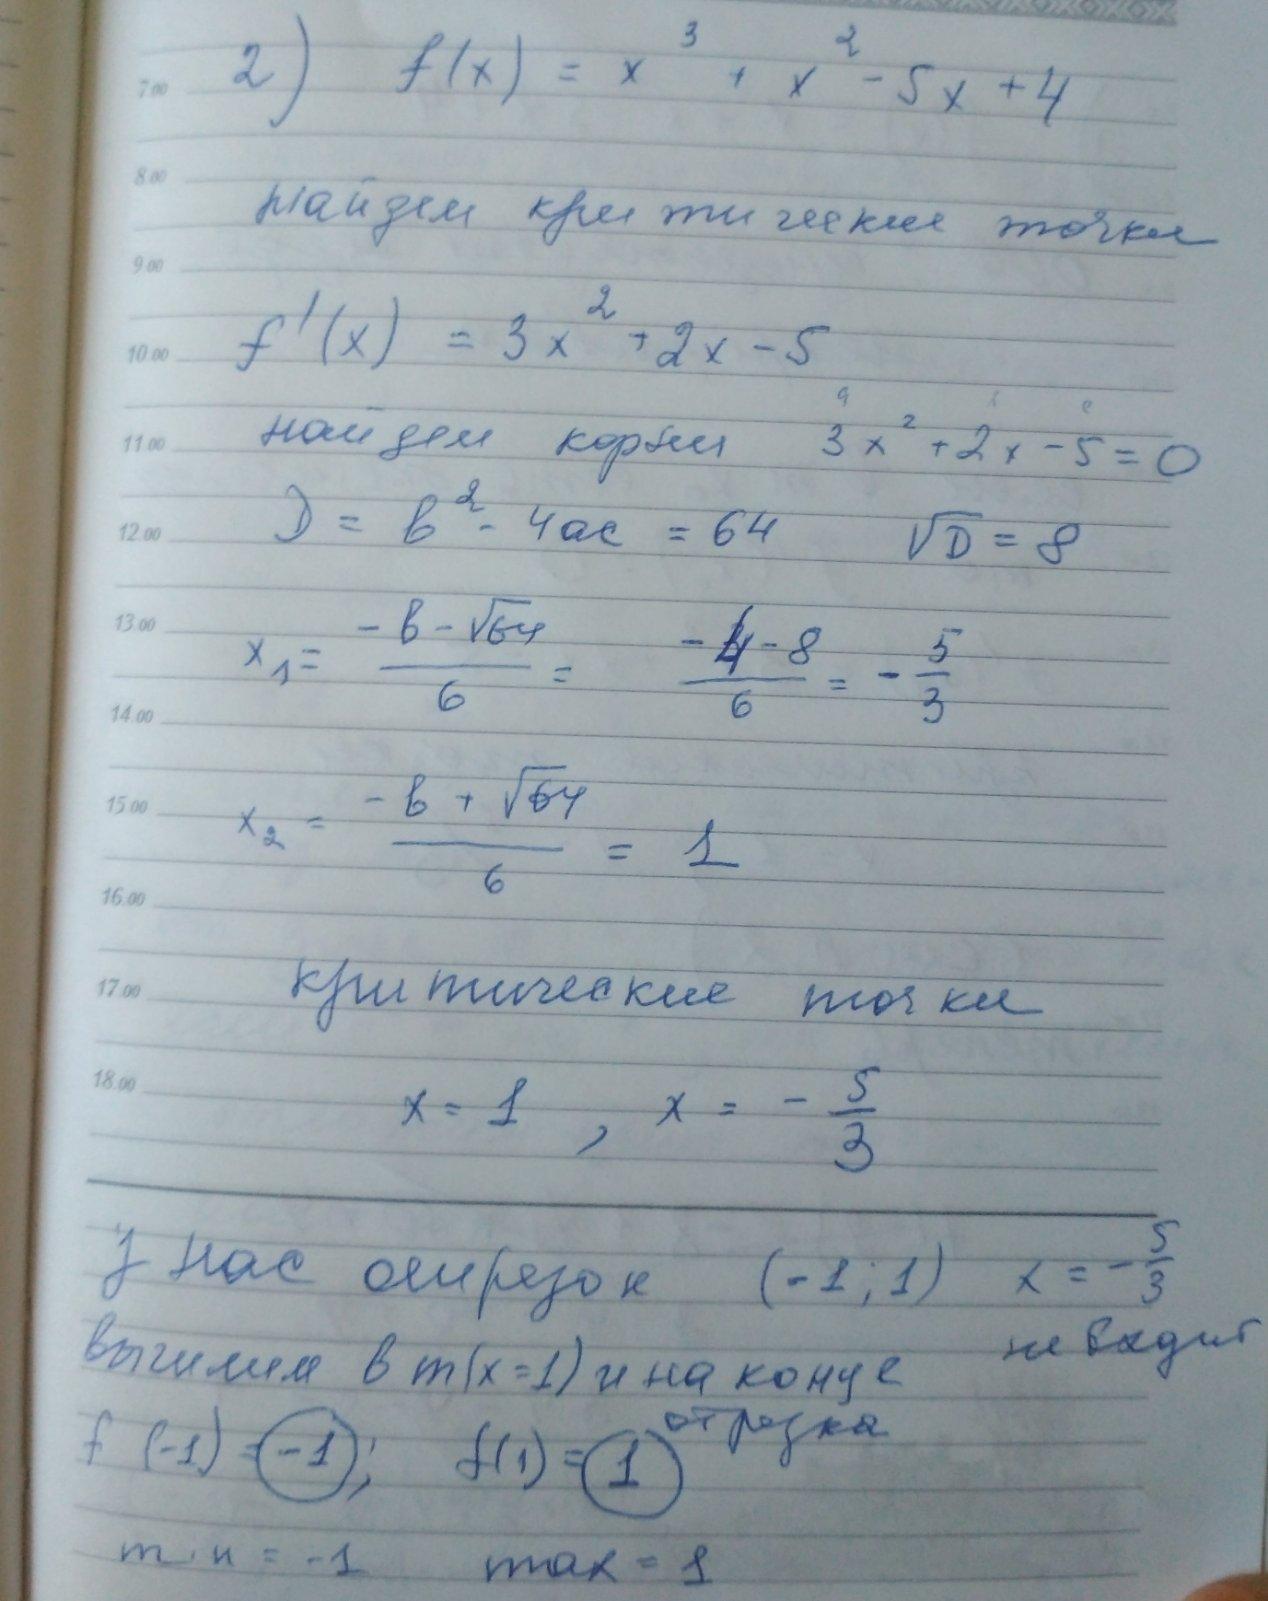 2) f(x) = x³ + x² - 5x + 4
7.00
8.00
найдем критические точки
9.00
f'(x) = 3x² + 2x - 5
10.00
найдем корни 3x² + 2x - 5 = 0
11.00
D = b² - 4ac = 64 √D = 8
12.00
x₁ = (-b - √64)/6 = (-4 - 8)/6 = -5/3
13.00
14.00
x₂ = (-b + √64)/6 = 1
15.00
16.00
критические точки
17.00
x = 1, x = -5/3
18.00
У нас отрезок (-1; 1) x = -5/3
не входит
вычислим в т(x=1) и на конце
отрезка
f(-1) = -1; f(1) = 1
min = -1 max = 1